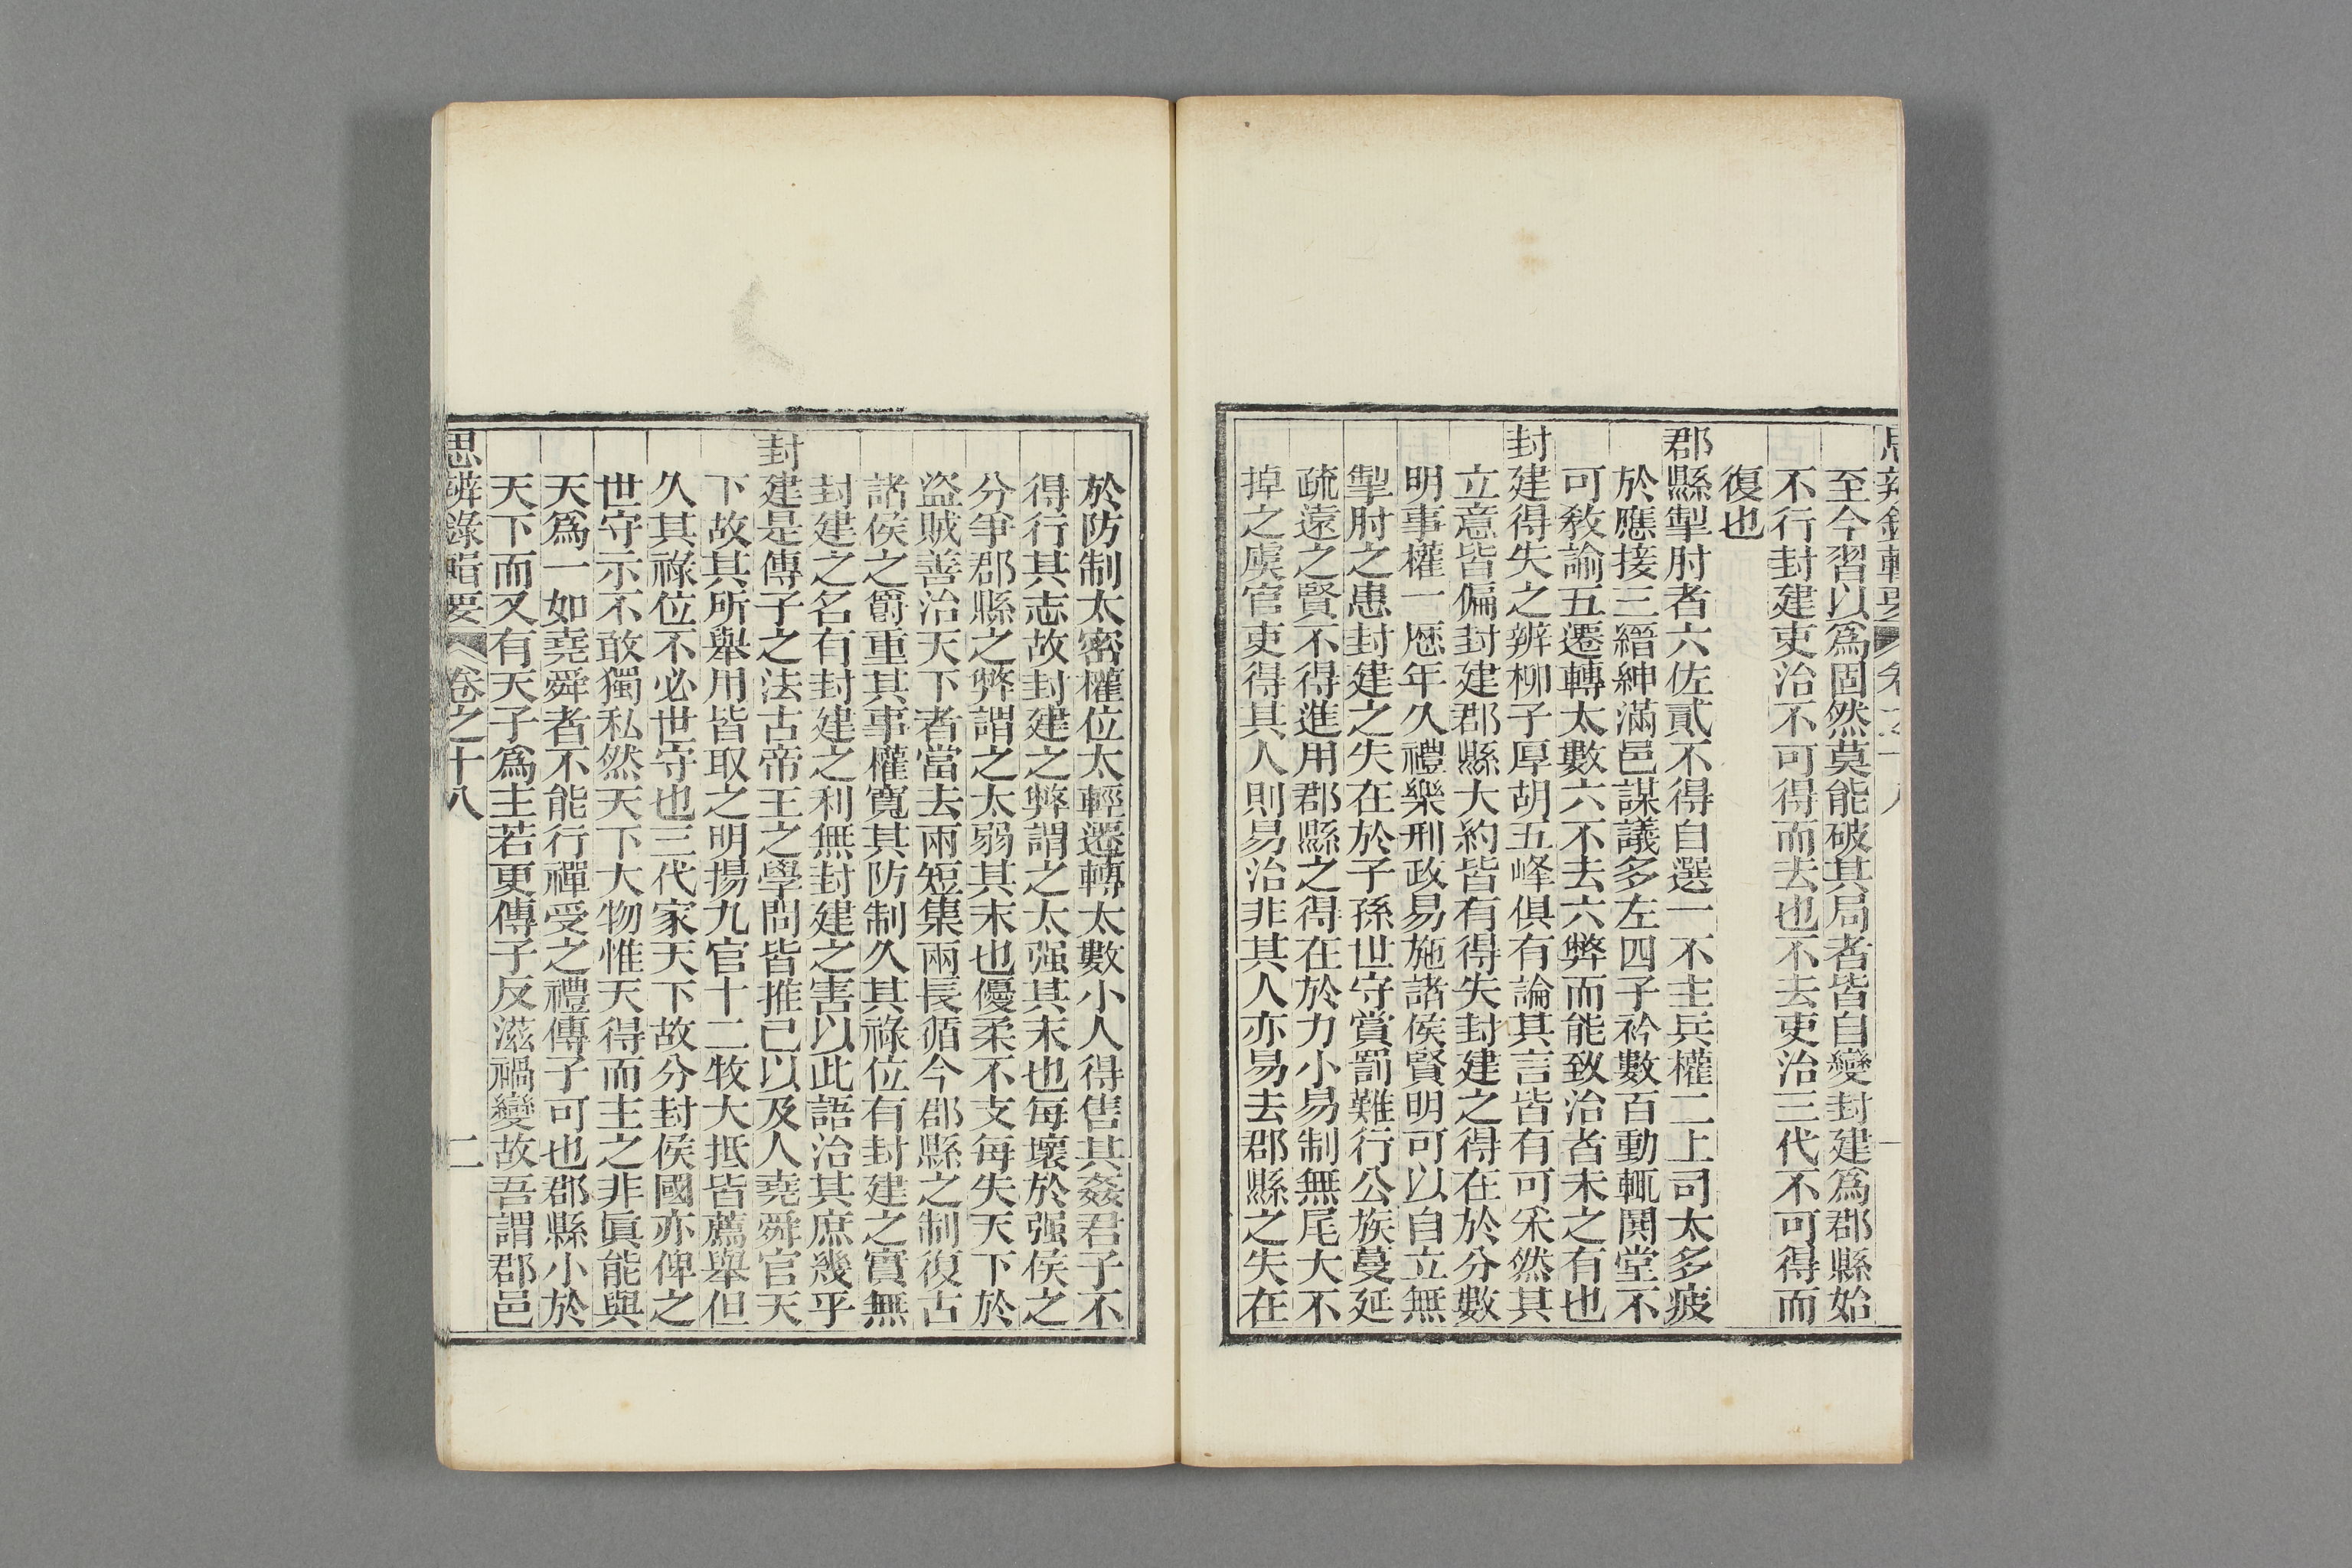 至今習以爲固然莫能破其局者皆自變封建爲郡縣始
不行封建吏治不可得而去也不去吏治三代不可得而
復也
郡縣掣肘者六佐貳不得自選一不主兵權二上司太多疲
於應接三縉紳滿邑謀議多左四子衿數百動輒鬨堂不
可敎諭五遷轉太數六不去六弊而能致治者未之有也
封建得失之辨柳子厚胡五峰俱有論其言皆有可采然其
立意皆偏封建郡縣大約皆有得失封建之得在於分數
明事權一歷年久禮樂刑政易施諸侯賢明可以自立無
掣肘之患封建之失在於子孫世守賞罰難行公族蔓延
疏遠之賢不得進用郡縣之得在於力小易制無尾大不
掉之虞官吏得其人則易治非其人亦易去郡縣之失在
於防制太密權位太輕遷轉太數小人得售其姦君子不
得行其志故封建之弊謂之太强其末也每壞於强侯之
分爭郡縣之弊謂之太弱其末也優柔不支每失天下於
盜賊善治天下者當去兩短集兩長循今郡縣之制復古
諸侯之爵重其事權寬其防制久其祿位有封建之實無
封建之名有封建之利無封建之害以此語治其庶幾乎
封建是傳子之法古帝王之學問皆推己以及人堯舜官天
下故其所舉用皆取之明揚九官十二牧大抵皆薦舉但
久其祿位不必世守也三代家天下故分封侯國亦俾之
世守示不敢獨私然天下大物惟天得而主之非眞能與
天爲一如堯舜者不能行禪受之禮傳子可也郡縣小於
天下而又有天子爲主若更傳子反滋禍變故吾謂郡邑
思辨錄輯要 卷之十八 二